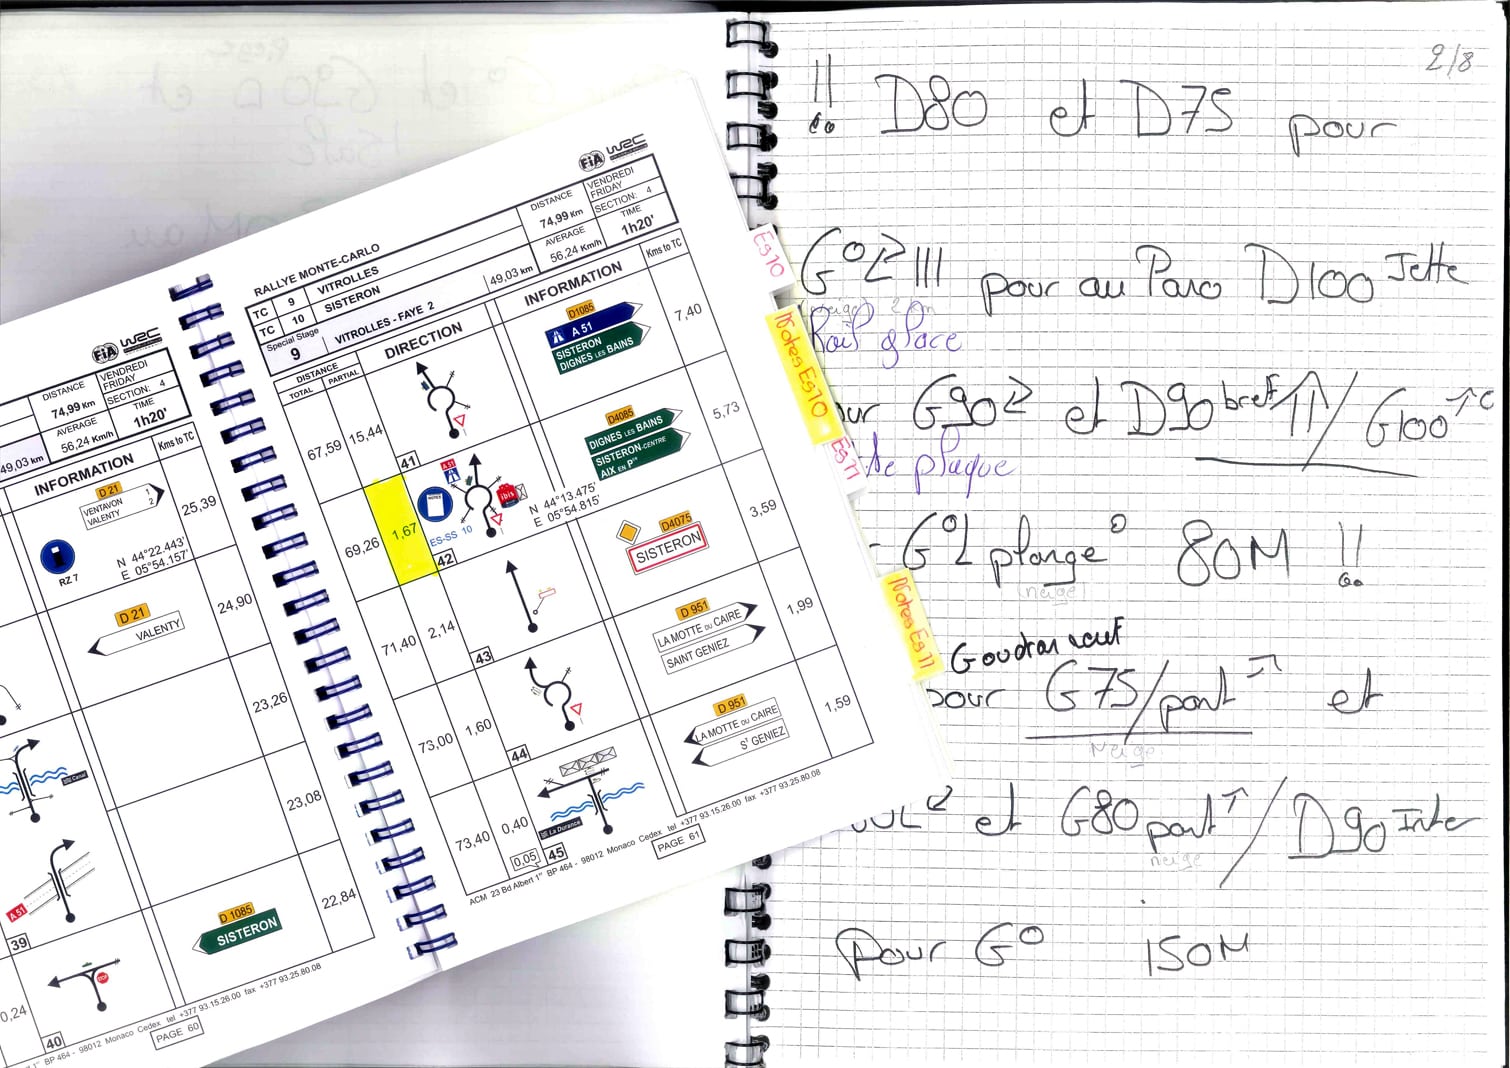 FIA WRC
DISTANCE
74,99 Km
VENDREDI
FRIDAY
SECTION: 4
AVERAGE
56,24 Km/h
TIME
1h20'
49,03 km
INFORMATION
Kms to TC
D 21
VENTAVON 1
VALENTY 2
25,39
N 44°22.443'
E 05°54.157'
RZ 7
D 21
VALENTY
24,90
23,26
23,08
A 51
39
D 1085
SISTERON
22,84
0,24
STOP
40
BP 464 - 98012 Monaco Cedex tel +377 93.15.26.00 fax +377 93.25.80.08
PAGE 60
FIA WRC
RALLYE MONTE-CARLO
TC 9 VITROLLES
TC 10 SISTERON
Special Stage
9 VITROLLES - FAYE 2
49,03 km
DISTANCE
74,99 Km
VENDREDI
FRIDAY
SECTION: 4
AVERAGE
56,24 Km/h
TIME
1h20'
DISTANCE
TOTAL PARTIAL
DIRECTION
INFORMATION
Kms to TC
67,59 15,44
41
D1085
A 51
SISTERON
DIGNES LES BAINS
7,40
69,26 1,67
A 51
NOTES
ibis
ES-SS 10
42
N 44°13.475'
E 05°54.815'
D4085
DIGNES LES BAINS
SISTERON-CENTRE
AIX EN Pce
5,73
71,40 2,14
43
D4075
SISTERON
3,59
73,00 1,60
44
D 951
LA MOTTE DU CAIRE
SAINT GENIEZ
1,99
73,40 0,40
La Durance
0,05
45
D 951
LA MOTTE DU CAIRE
ST GENIEZ
1,59
ACM 23 Bd Albert 1er BP 464 - 98012 Monaco Cedex tel +377 93.15.26.00 fax +377 93.25.80.08
PAGE 61
Es10
Notes Es10
Es11
Notes Es11
2/8
!! D80 et D75 pour
pour au Paro D100 Jette
glace
G90 et D90 bref / G100
plaque
plonge 80M !!
neige
Goudron neuf
pour G75/pont et
Neige
et G80 pont / D90 Inter
neige
Pour G° 150M